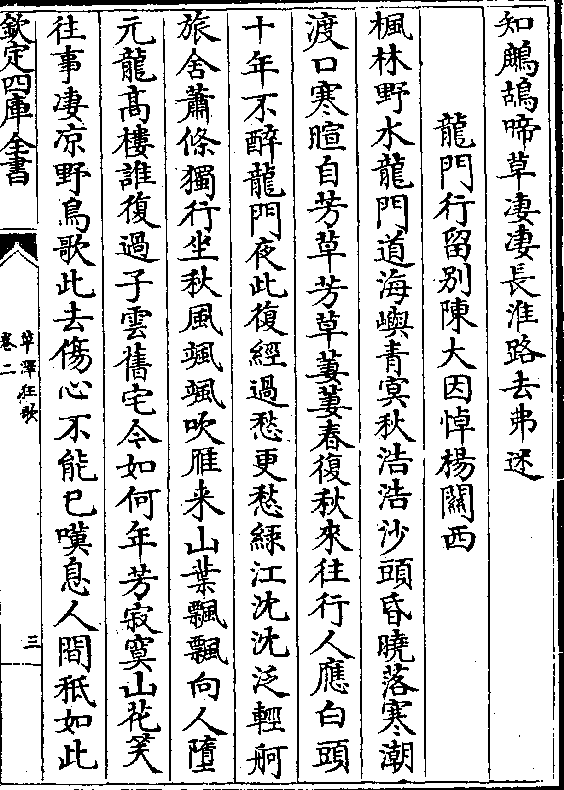 知鷓鴣啼草凄凄長淮路去弗迷
龍門行留別陳大因悼楊關西
楓林野水龍門道海嶼青㝠秋浩浩沙頭昏曉落寒潮
渡口寒暄自芳草芳草萋萋春復秋來往行人應白頭
十年不醉龍門夜此復經過愁更愁緑江沈沈泛輕舸
旅舍蕭條獨行坐秋風颯颯吹雁来山葉飄飄向人墮
元龍髙樓誰復過子雲舊宅今如何年芳寂寞山花笑
往事凄凉野鳥歌此去傷心不能已嘆息人間秪如此
欽定四庫全書
草澤狂歌
卷二
三